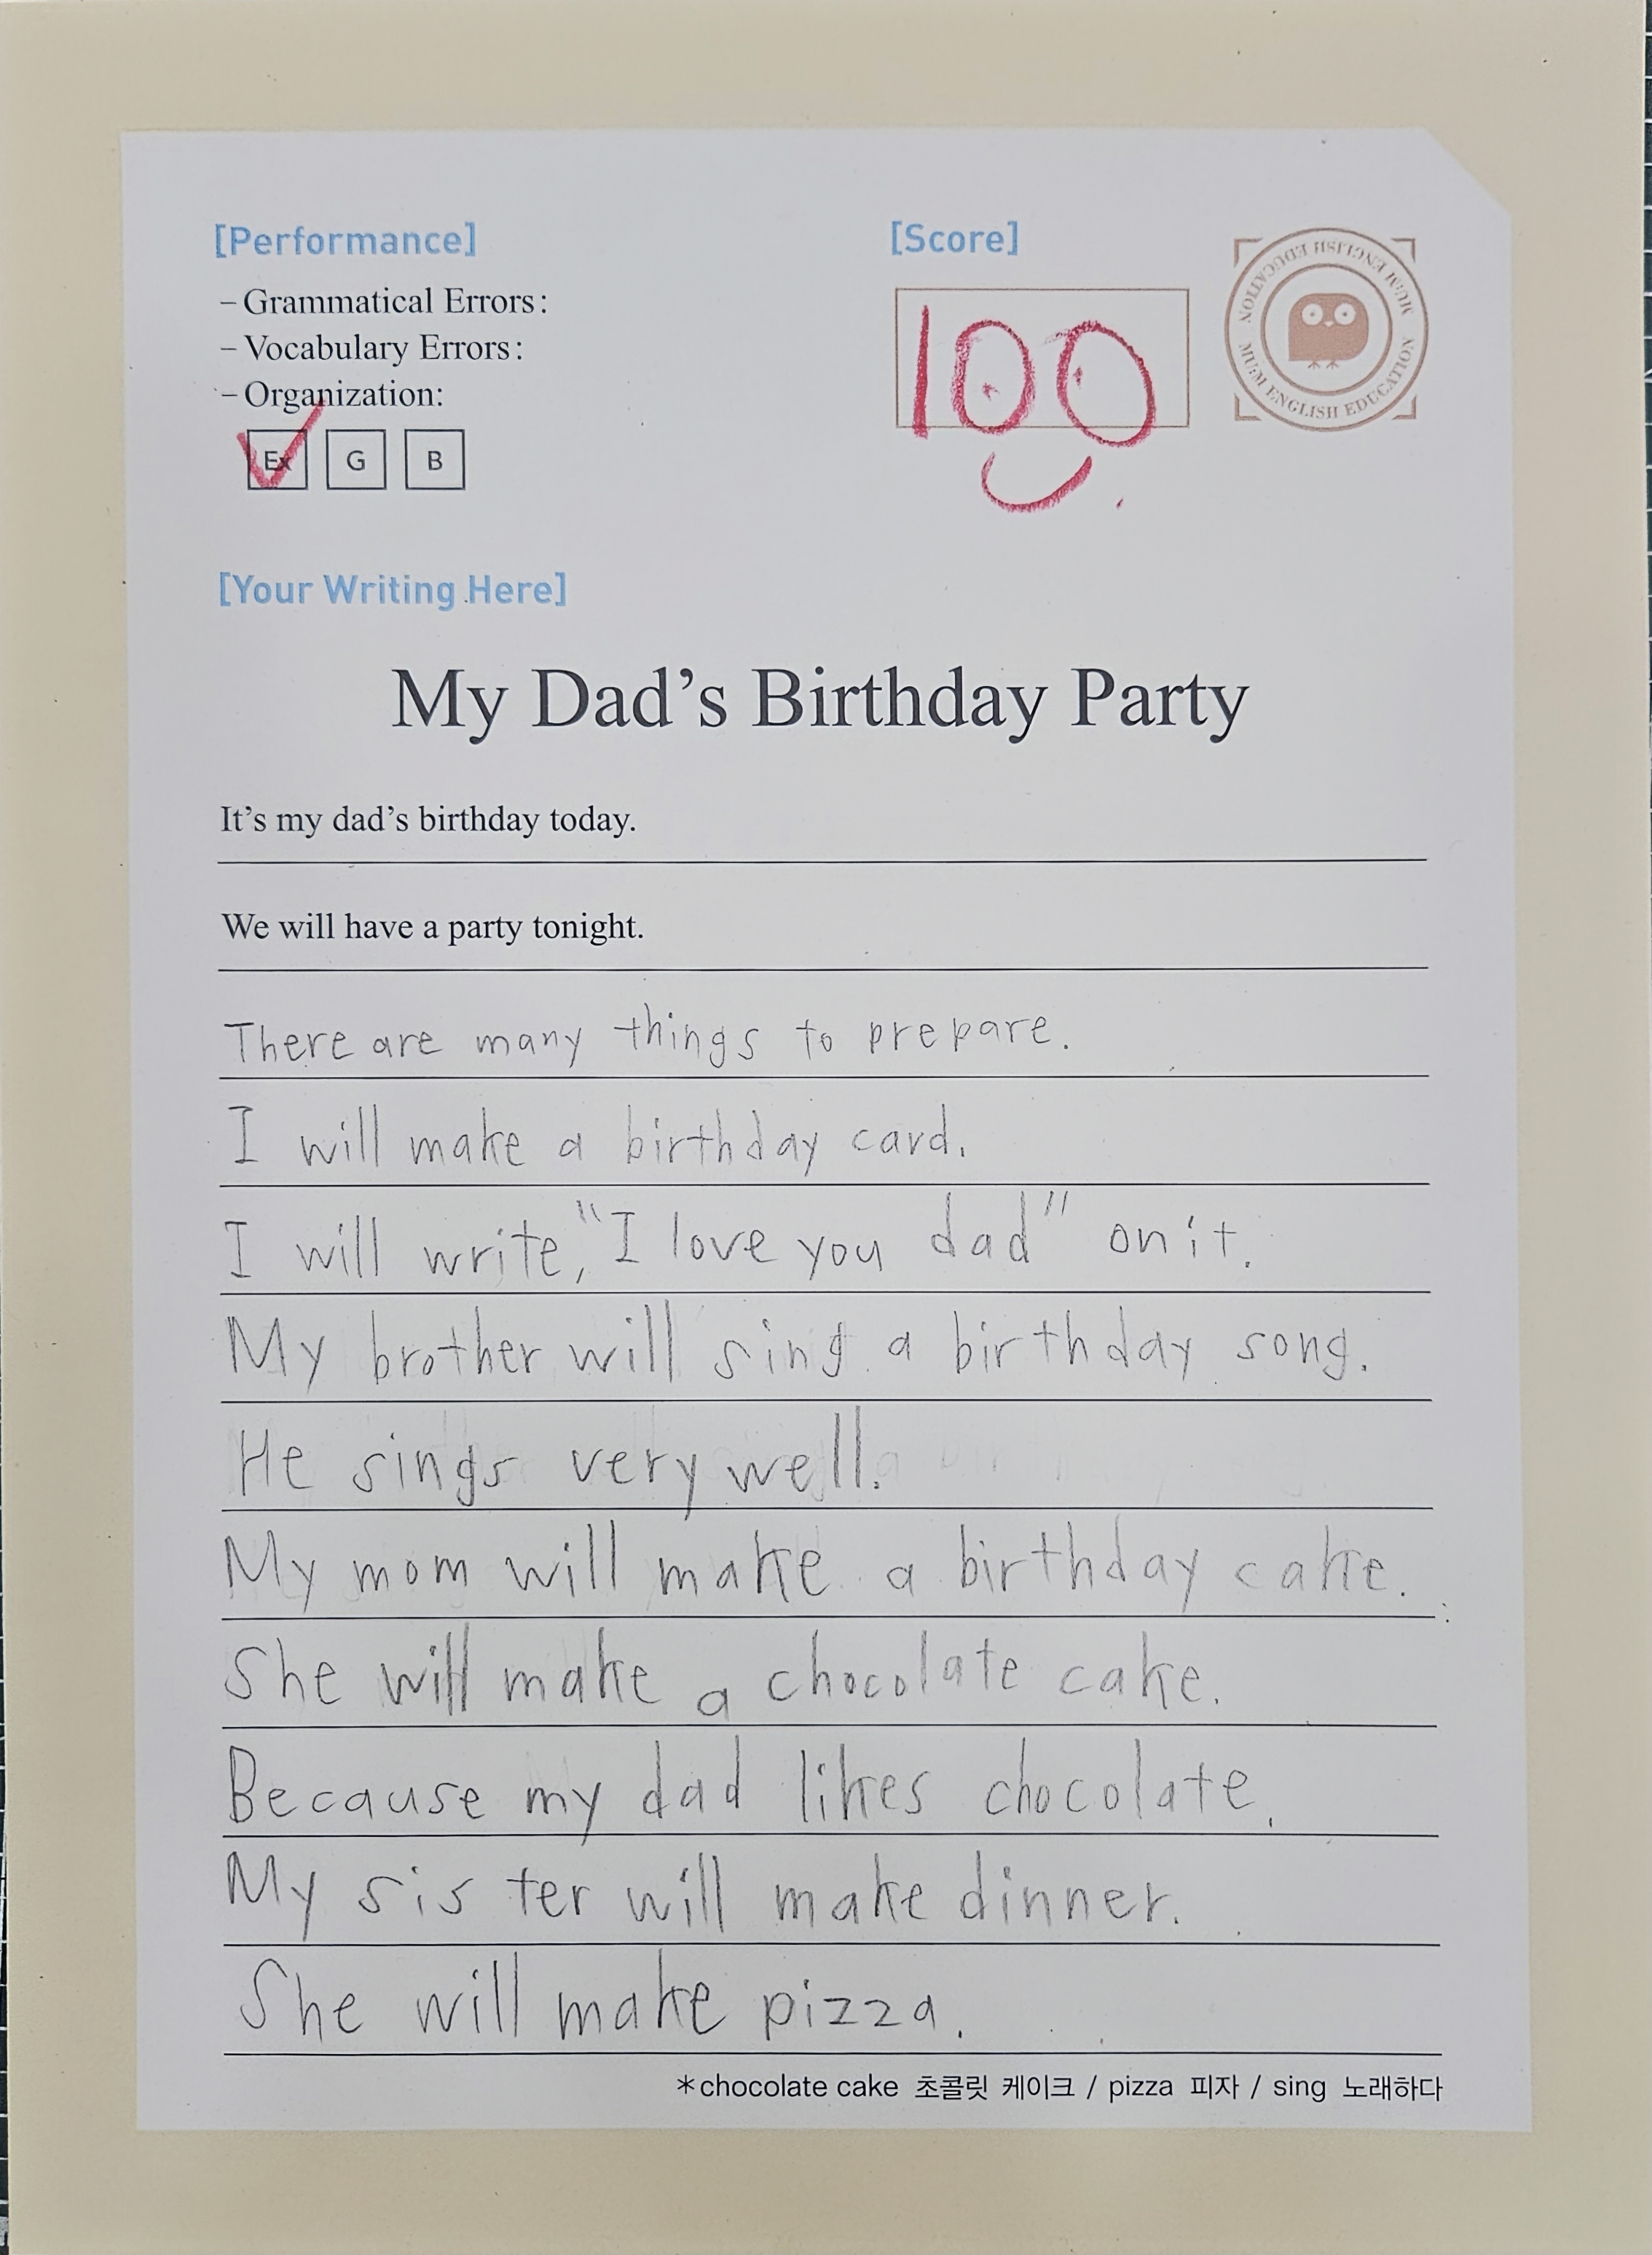 [Performance]
[Score]
– Grammatical Errors:
– Vocabulary Errors:
– Organization:
Ex G B
100
MU:M ENGLISH EDUCATION MU:M ENGLISH EDUCATION
[Your Writing Here]
My Dad's Birthday Party
It's my dad's birthday today.
We will have a party tonight.
There are many things to prepare.
I will make a birthday card.
I will write, "I love you dad" on it.
My brother will sing a birthday song.
He sings very well.
My mom will make a birthday cake.
She will make a chocolate cake.
Because my dad likes chocolate.
My sister will make dinner.
She will make pizza.
*chocolate cake 초콜릿 케이크 / pizza 피자 / sing 노래하다